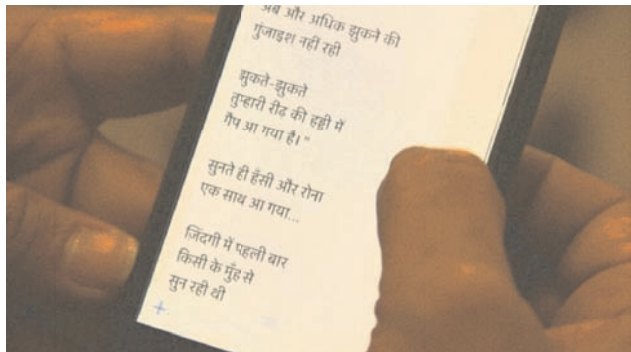 अब और अधिक झुकने की
गुंजाइश नहीं रही
झुकते-झुकते
तुम्हारी रीढ़ की हड्डी में
गैप आ गया है। "
सुनते ही हँसी और रोना
एक साथ आ गया...
ज़िंदगी में पहली बार
किसी के मुँह से
सुन रही थी